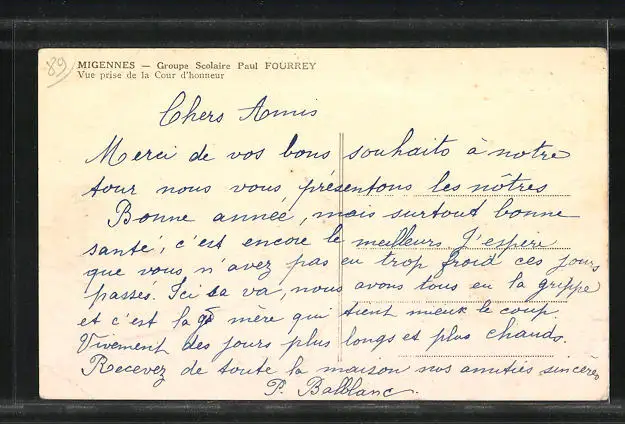 89
MIGENNES — Groupe Scolaire Paul FOURREY
Vue prise de la Cour d'honneur
Chers Amis
Merci de vos bons souhaits à notre
tour nous vous présentons les nôtres
Bonne année, mais surtout bonne
santé, c'est encore le meilleurs. J'espère
que vous n'avez pas eu trop froid ces jours
passés. Ici sa va, nous avons tous eu la grippe
et c'est la mère qui tient mieux le coup.
Vivement des jours plus longs et plus chauds.
Recevez de toute la maison nos amitiés sincères
P. Balblanc.